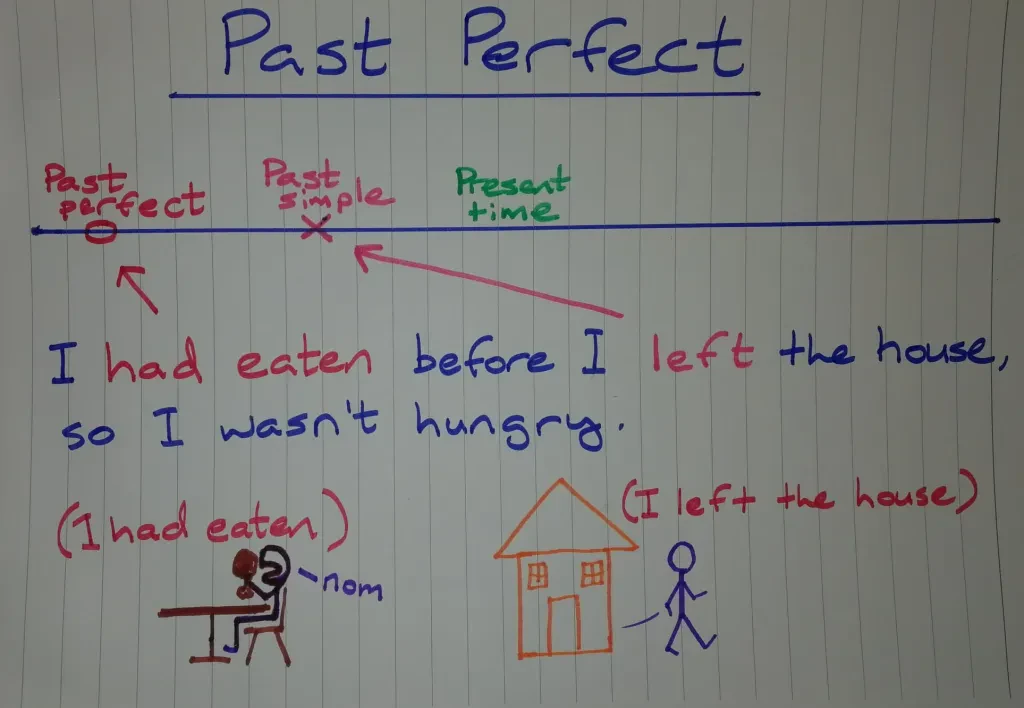 Past Perfect
Past
perfect
Past
simple
Present
time
I had eaten before I left the house,
so I wasn't hungry.
(I had eaten)
(I left the house)
nom